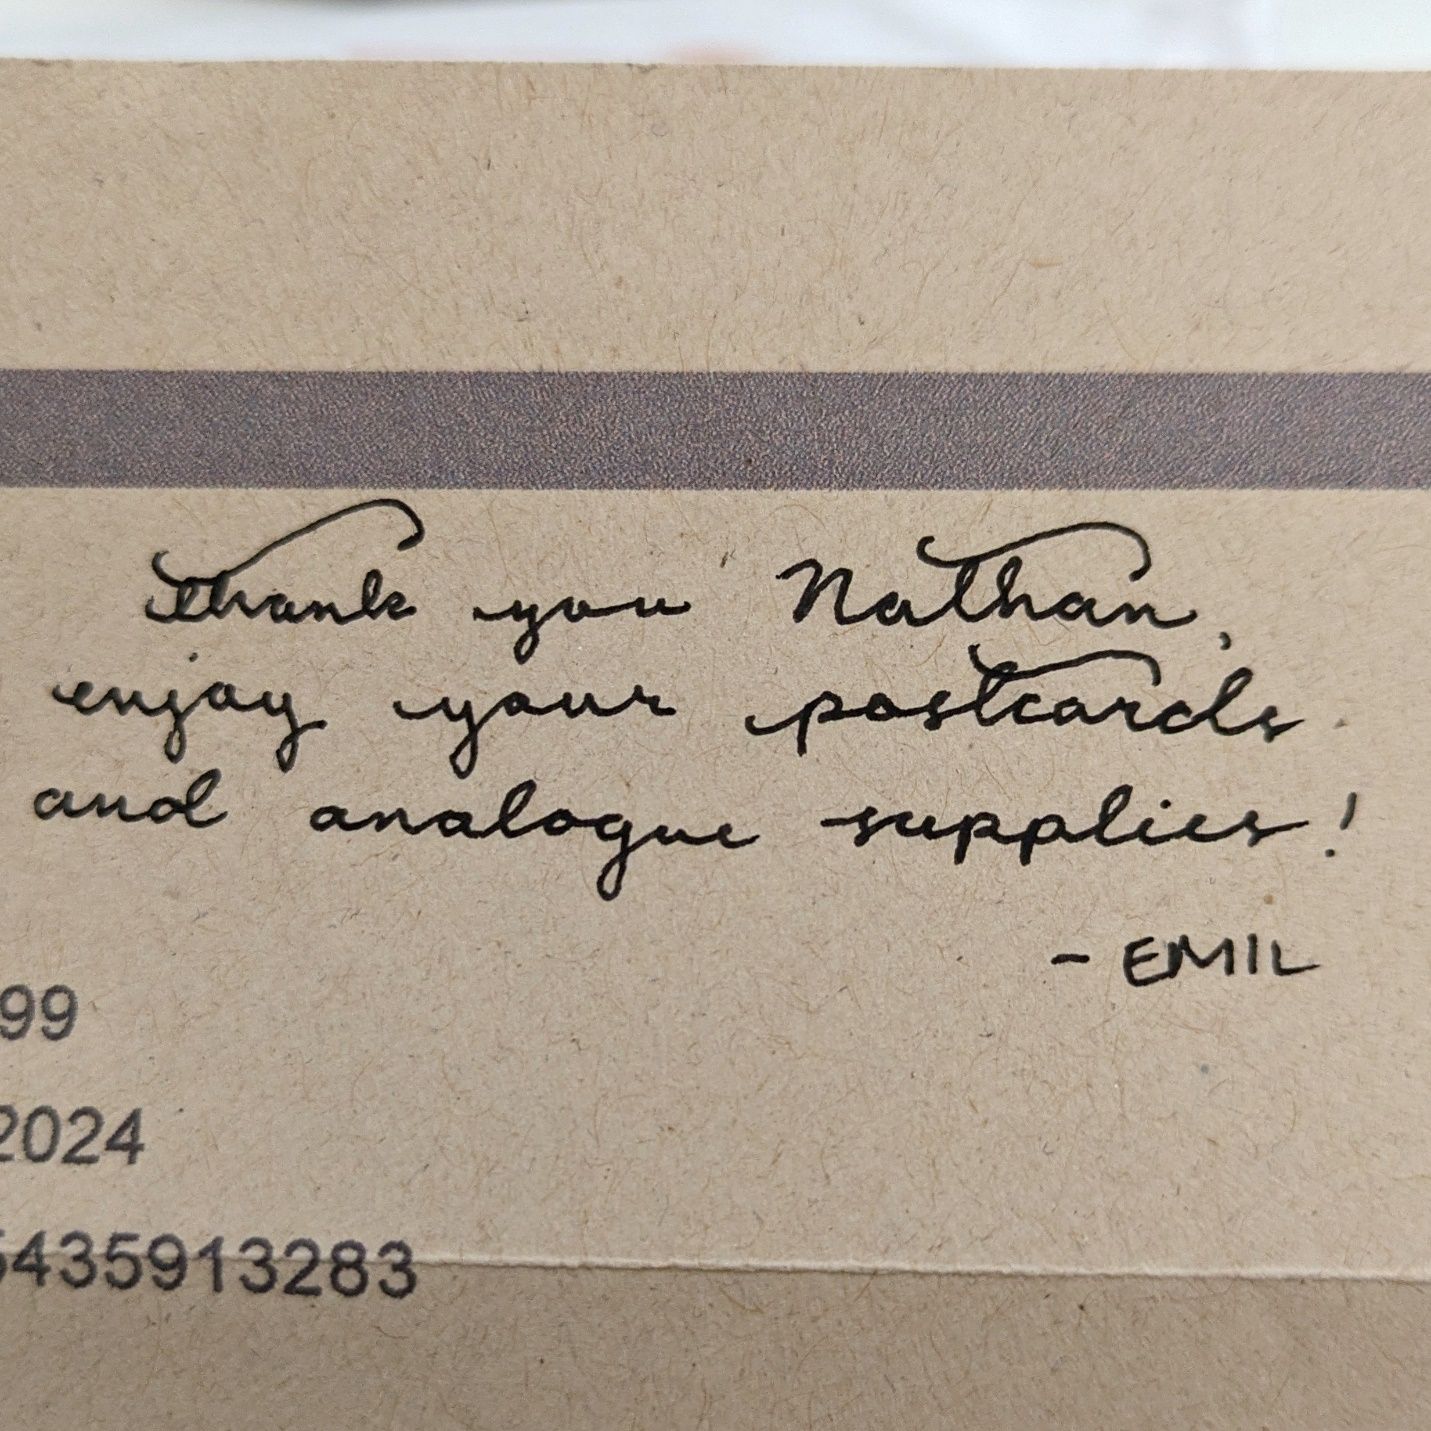 thank you Nathan,
enjoy your postcards
and analogue supplies!
- EMIL
99
2024
5435913283